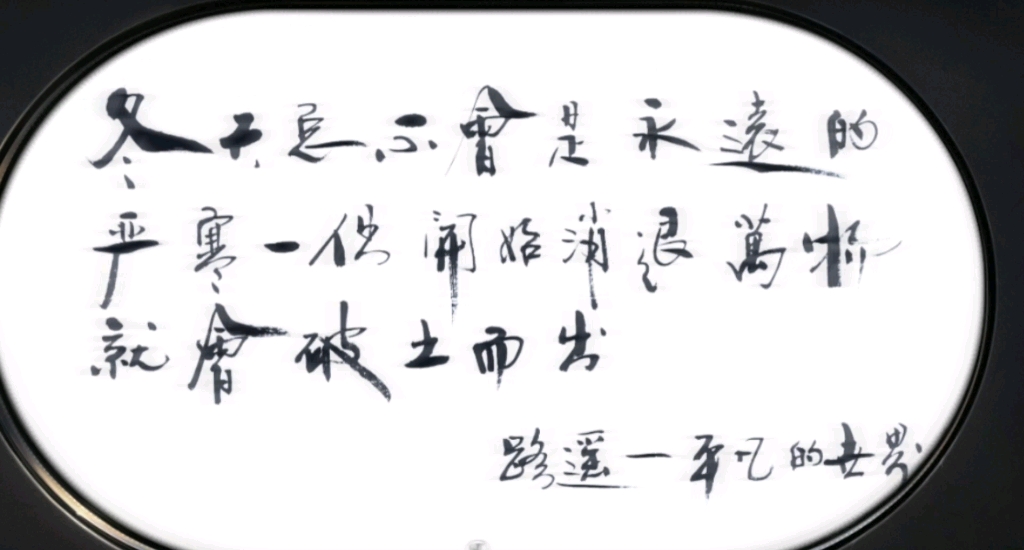 冬天总不會是永遠的
严寒一但開始消退萬物
就會破土而出
路遥一平凡的世界